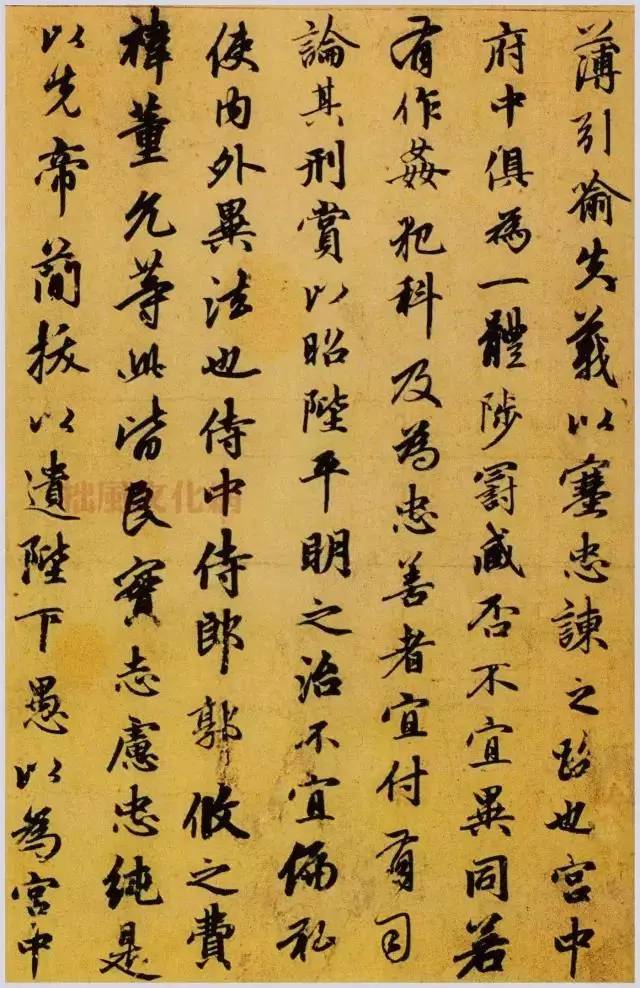 薄引喻失義以塞忠諫之路也宮中
府中俱為一體陟罰臧否不宜異同若
有作姦犯科及為忠善者宜付有司
論其刑賞以昭陛平明之治不宜偏私
使內外異法也侍中侍郎郭攸之費
禕董允等此皆良實志慮忠純是
以先帝簡拔以遺陛下愚以為宮中
拙風文化網